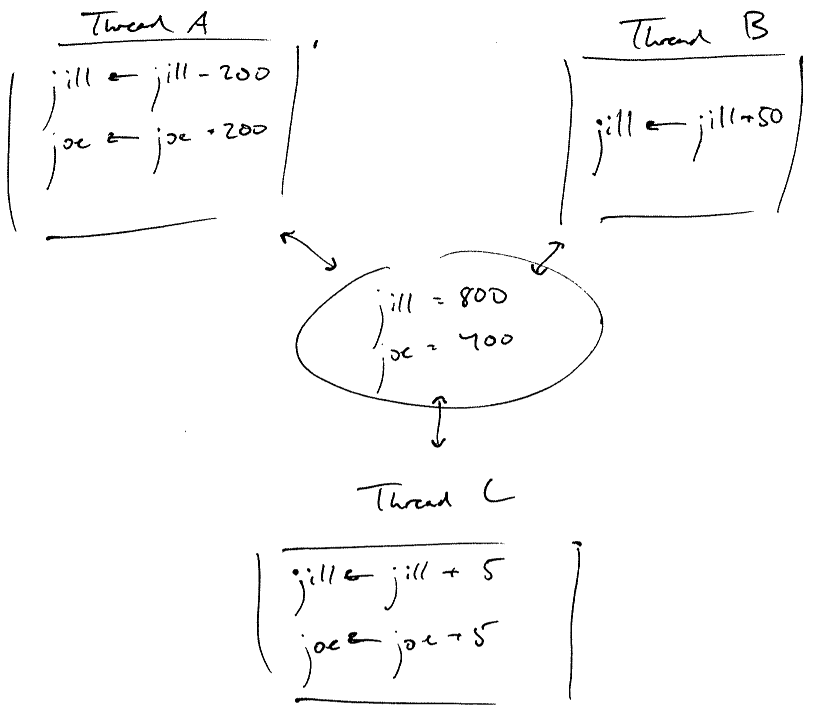 Thread A
jill ← jill - 200
joe ← joe + 200
Thread B
jill ← jill + 50
jill = 800
joe = 400
Thread C
jill ← jill + 5
joe ← joe + 5